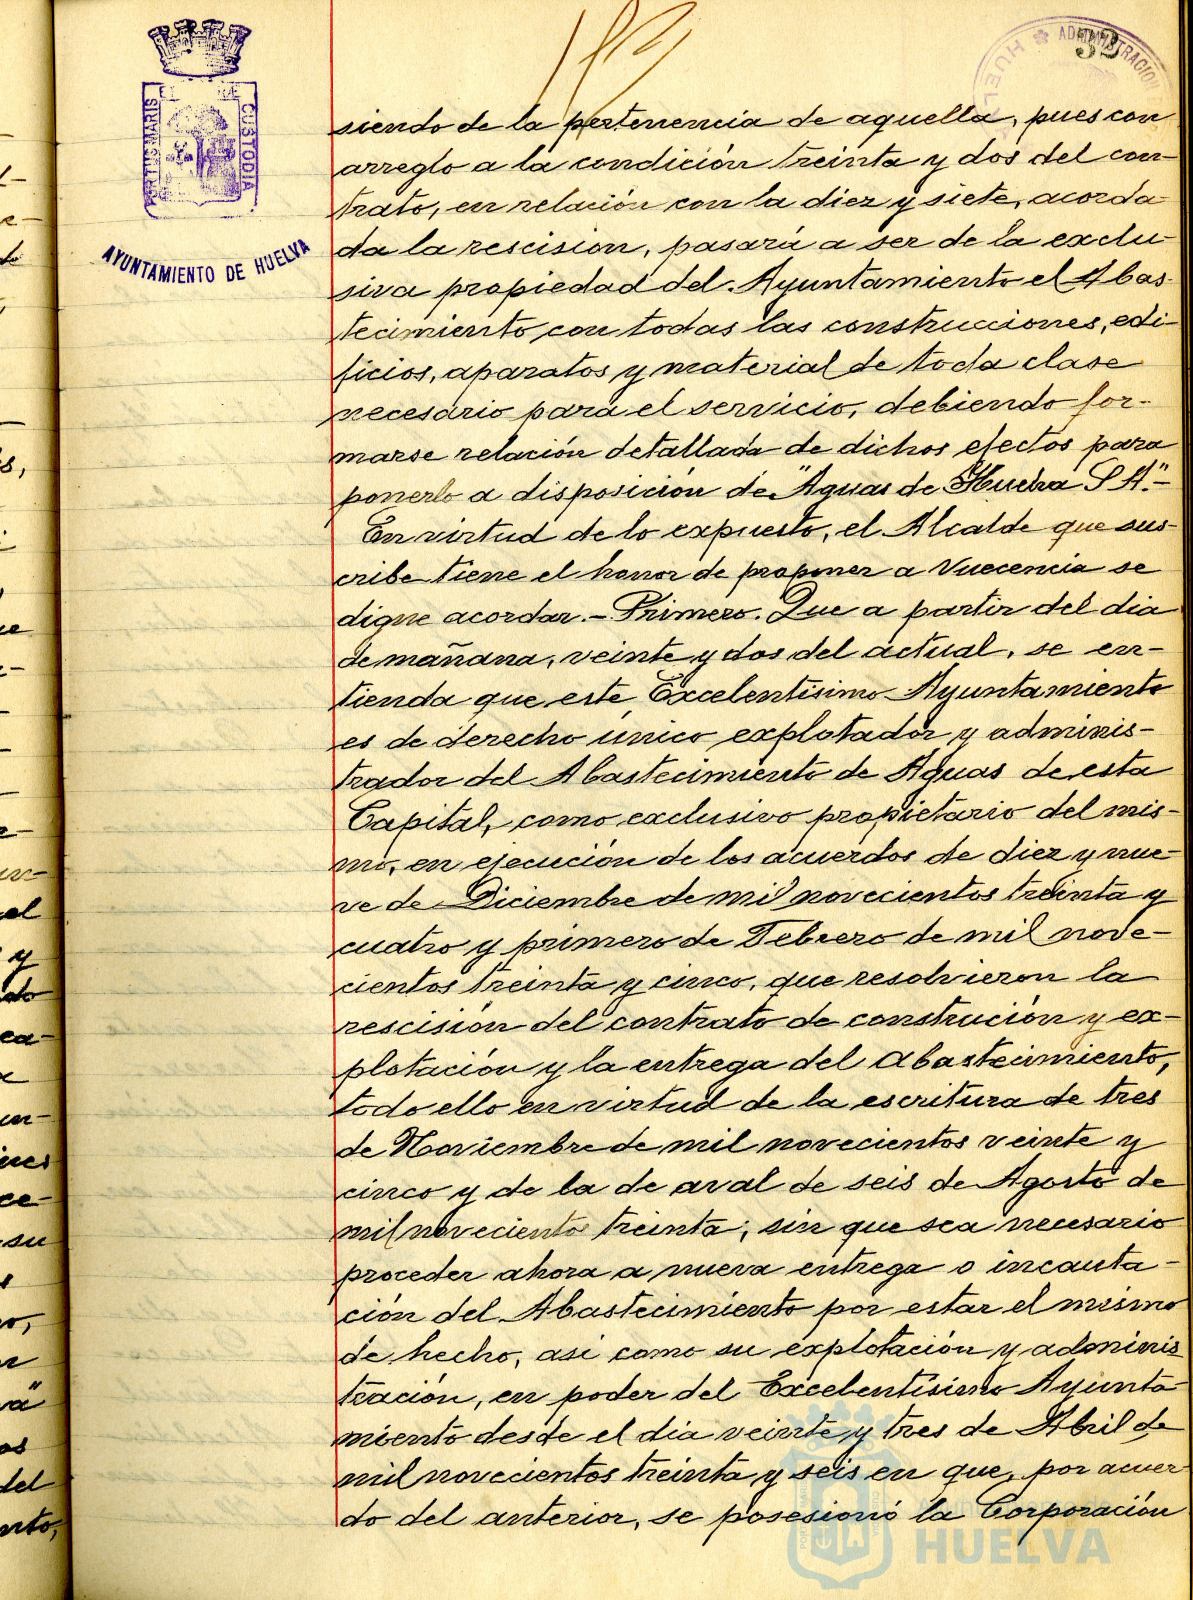 32
ADMINISTRACION
HUEL
PORTUS MARIS
CUSTODIA
AYUNTAMIENTO DE HUELVA
siendo de la pertenencia de aquella, pues con
arreglo a la condición treinta y dos del con-
trato, en relación con la diez y siete, acorda-
da la rescisión, pasará a ser de la exclu-
siva propiedad del Ayuntamiento el Abas-
tecimiento con todas las construcciones, edi-
ficios, aparatos y material de toda clase
necesario para el servicio, debiendo for-
marse relación detallada de dichos efectos para
ponerlo a disposición de "Aguas de Huelva S.A."-
En virtud de lo expuesto, el Alcalde que sus-
cribe tiene el honor de proponer a Vuecencia se
digne acordar.- Primero. Que a partir del dia
de mañana, veinte y dos del actual, se en-
tienda que este Excelentísimo Ayuntamiento
es de derecho único explotador y adminis-
trador del Abastecimiento de Aguas de esta
Capital, como exclusivo propietario del mis-
mo, en ejecución de los acuerdos de diez y nue-
ve de Diciembre de mil novecientos treinta y
cuatro y primero de Febrero de mil nove-
cientos treinta y cinco, que resolvieron la
rescisión del contrato de construción y ex-
plotación y la entrega del Abastecimiento,
todo ello en virtud de la escritura de tres
de Noviembre de mil novecientos veinte y
cinco y de la de aval de seis de Agosto de
mil novecientos treinta; sin que sea necesario
proceder ahora a nueva entrega o incauta-
ción del Abastecimiento por estar el mismo
de hecho, asi como su explotación y adminis
tración, en poder del Excelentísimo Ayunta-
miento desde el dia veinte y tres de Abril de
mil novecientos treinta y seis en que, por acuer-
do del anterior, se posesionó la Corporación
HUELVA